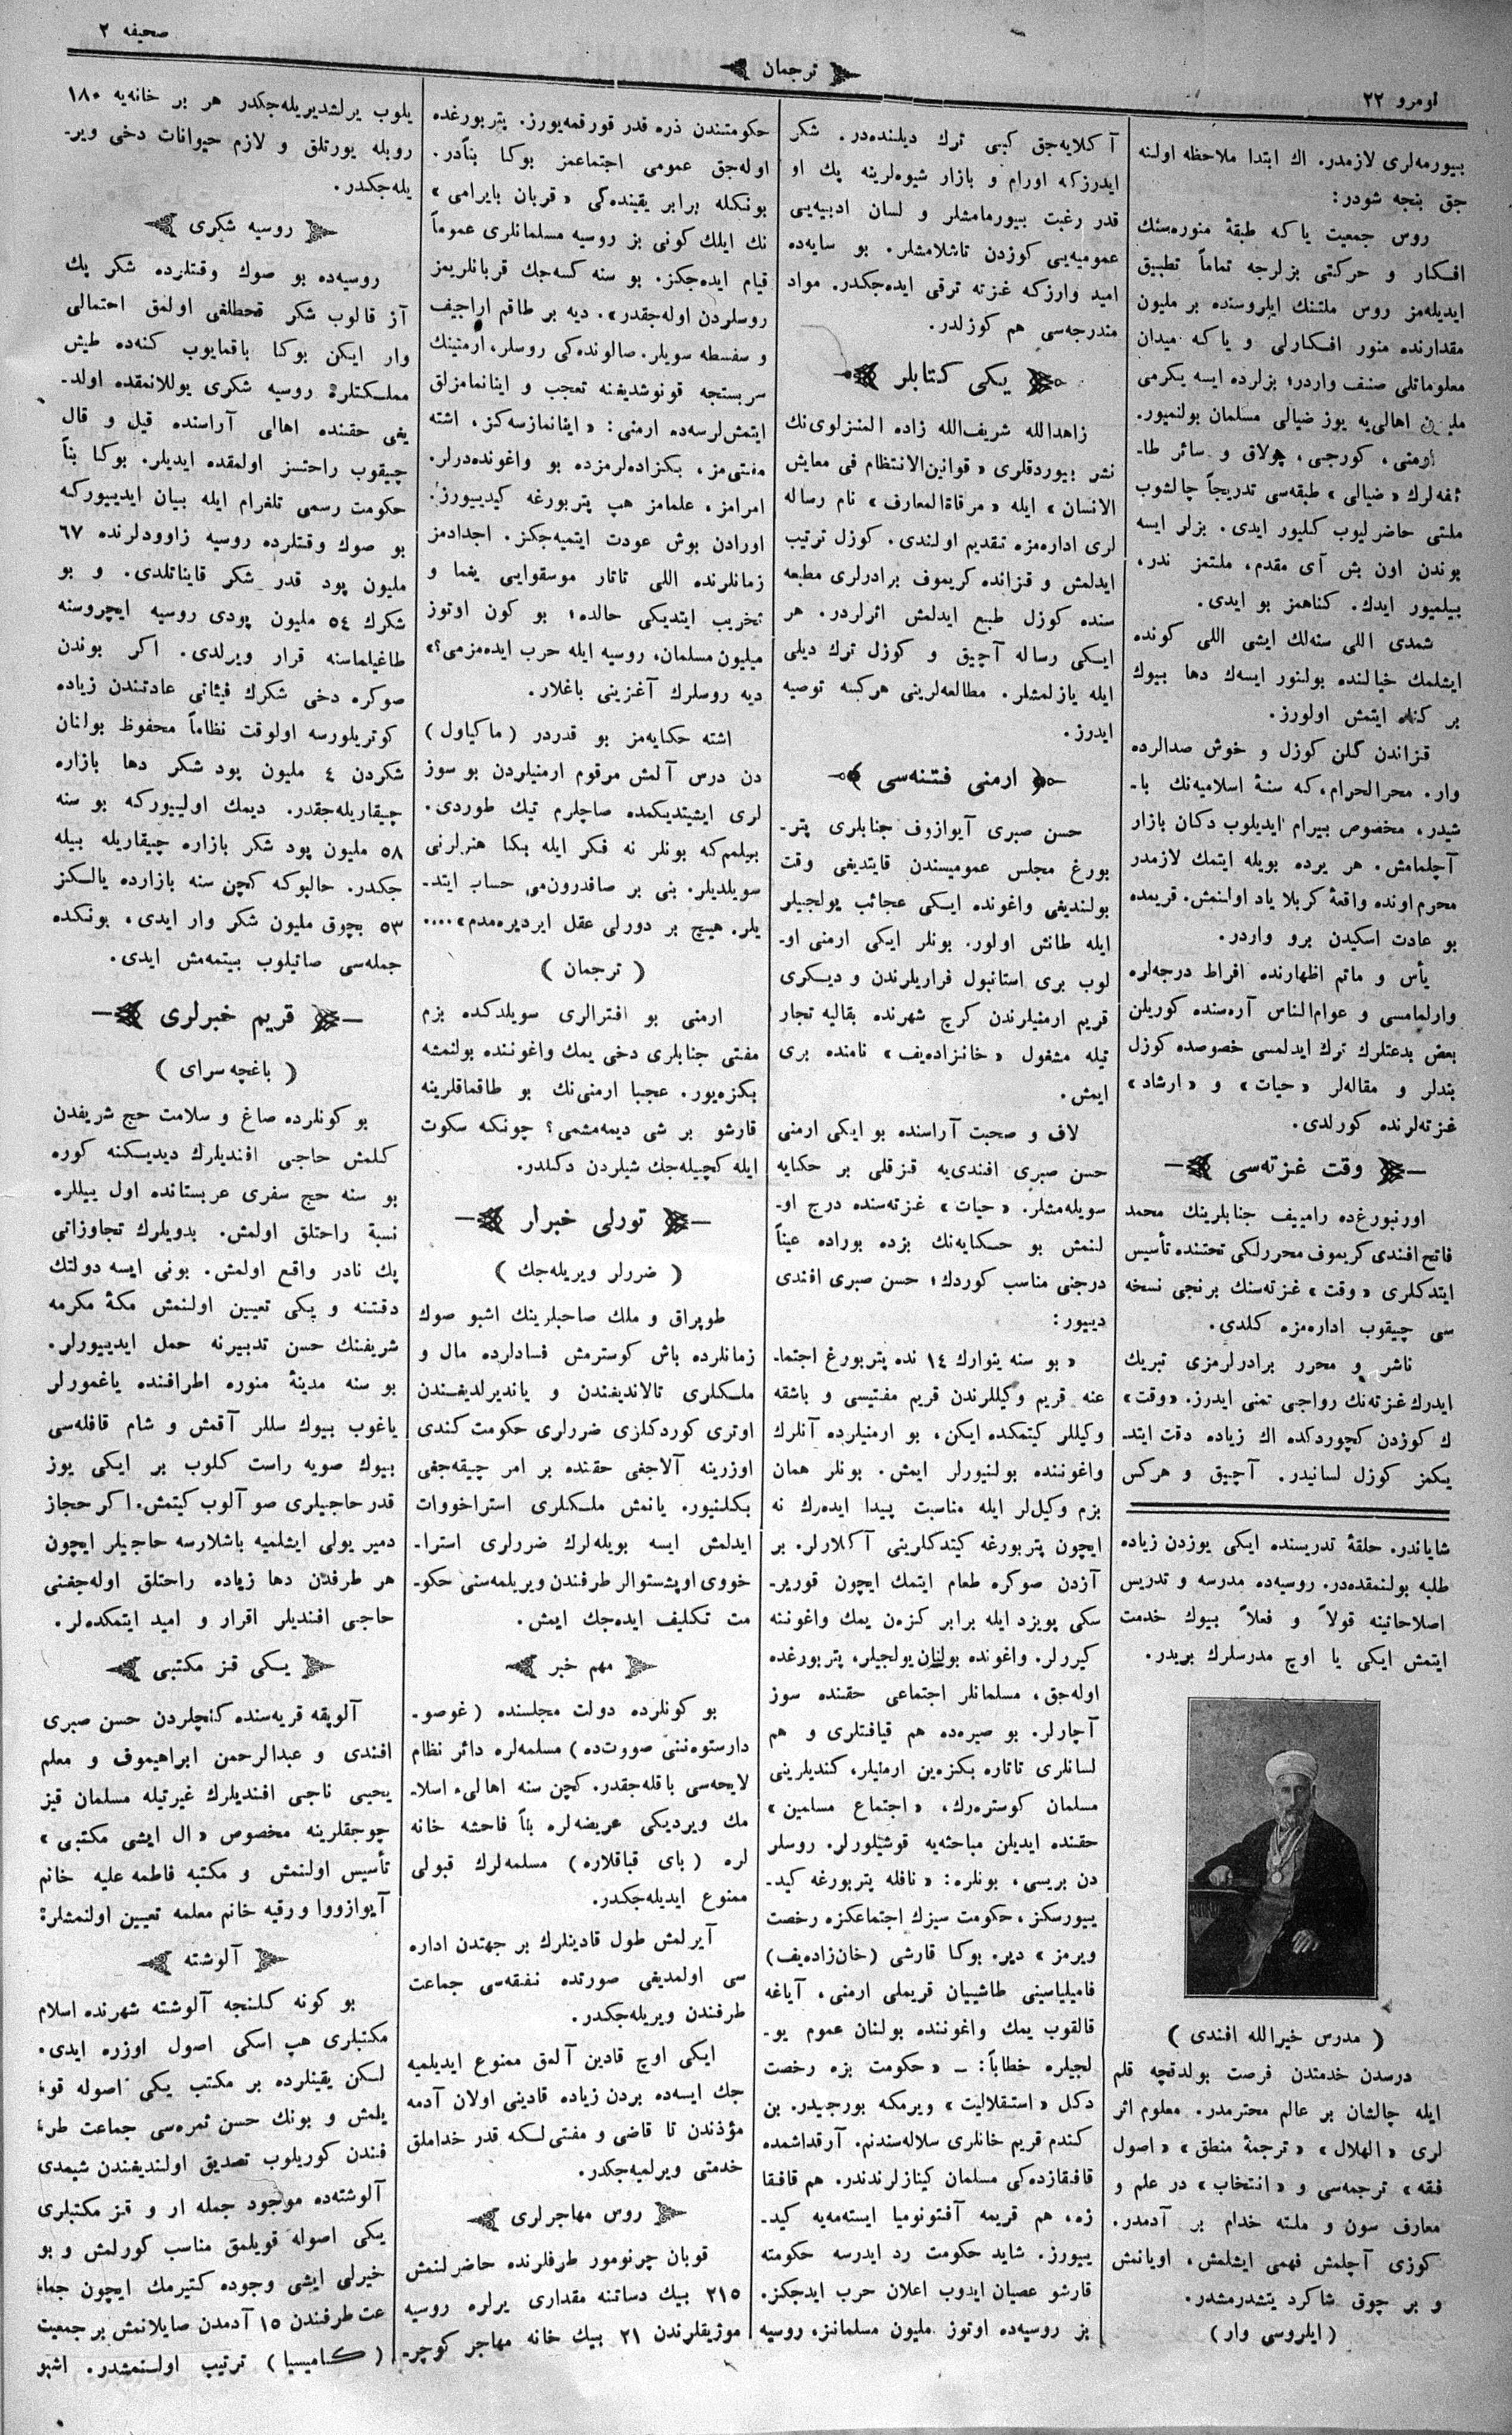 صحیفه ۲
ترجمان
نومرو ۲۲
بیورمه‌لری لازمدر. اك ابتدا ملاحظه اولنه
جق بنجه شودر:
روس جمعیت یا که طبقهٔ منوره‌سنك
افکار و حرکتی بزلرجه تماماً تطبیق
ایدیله‌مز روس ملتنك ایلروسنده بر ملیون
مقدارنده منور افکارلی و یا که میدان
معلوماتلی صنف واردر؛ بزلرده ایسه یکرمی
ملیون اهالی‌یه یوز ضیالی مسلمان بولنمیور.
ارمنی، کورجی، پولاق و سائر طا-
ئفه‌لرك «ضیالی» طبقه‌سی تدریجاً چالشوب
ملتی حاضرلیوب کلیور ایدی. بزلر ایسه
بوندن اون بش آی مقدم، ملتمز ندر،
بیلمیور ایدك. کناهمز بو ایدی.
شمدی اللی سنه‌لك ایشی اللی کونده
ایشلمك خیالنده بولنور ایسه‌ك دها بیوك
بر کناه ایتمش اولورز.
قزاندن کلن کوزل و خوش صدالرده
وار. محرالحرام، که سنهٔ اسلامیه‌نك با-
شیدر، مخصوص بیرام ایدیلوب دکان بازار
آچلمامش. هر یرده بویله ایتمك لازمدر
محرم اونده واقعهٔ کربلا یاد اولنمش. قریمده
بو عادت اسکیدن برو واردر.
یأس و ماتم اظهارنده افراط درجه‌لره
وارلمامسی و عوام‌الناس آره‌سنده کوریلن
بعض بدعتلرك ترك ایدلمسی خصوصده کوزل
بندلر و مقاله‌لر «حیات» و «ارشاد»
غزته‌لرنده کورلدی.
وقت غزته‌سی
اورنبورغ‌ده رامییف جنابلرینك محمد
فاتح افندی کریموف محررلکی تحتنده تأسیس
ایتدکلری «وقت» غزته‌سنك برنجی نسخه
سی چیقوب اداره‌مزه کلدی.
ناشر و محرر برادرلرمزی تبریك
ایدرك غزته‌نك رواجی تمنی ایدرز. «وقت»
ك کوزدن کچوردکده اك زیاده دقت ایتد-
یکمز کوزل لسانیدر. آچیق و هرکس
شایاندر. حلقهٔ تدریسنده ایکی یوزدن زیاده
طلبه بولنمقده‌در. روسیه‌ده مدرسه و تدریس
اصلاحاتینه قولاً و فعلاً بیوك خدمت
ایتمش ایکی یا اوچ مدرسلرك بریدر.
( مدرس خیرالله افندی )
درسدن خدمتندن فرصت بولدقچه قلم
ایله چالشان بر عالم محترمدر. معلوم اثر
لری «الهلال» «ترجمهٔ منطق» «اصول
فقه» ترجمه‌سی و «انتخاب» در علم و
معارف سون و ملته خدام بر آدمدر.
کوزی آچلمش فهمی ایشلمش، اویانمش
و بر چوق شاکرد یتشدرمشدر.
(ایلروسی وار)
آکلایه‌جق کبی ترك دیلنده‌در. شکر
ایدرزکه اورام و بازار شیوه‌لرینه پك او
قدر رغبت بیورمامشلر و لسان ادبیه‌یی
عمومیه‌یی کوزدن تاشلامشلر. بو سایه‌ده
امید وارزکه غزته ترقی ایده‌جکدر. مواد
مندرجه‌سی هم کوزلدر.
یکی کتابلر
زاهدالله شریف‌الله زاده المنزلوی‌نك
نشر بیوردقلری «قوانین‌الانتظام فی معایش
الانسان» ایله «مرقاةالمعارف» نام رساله
لری اداره‌مزه تقدیم اولندی. کوزل ترتیب
ایدلمش و قزانده کریموف برادرلری مطبعه
سنده کوزل طبع ایدلمش اثرلردر. هر
ایکی رساله آچیق و کوزل ترك دیلی
ایله یازلمشلر. مطالعه‌لرینی هرکسه توصیه
ایدرز.
ارمنی فتنه‌سی
حسن صبری آیوازوف جنابلری پتر-
بورغ مجلس عمومیسندن قایتدیغی وقت
بولندیغی واغونده ایکی عجائب یولجیلر
ایله طانش اولور. بونلر ایکی ارمنی او-
لوب بری استانبول فراریلرندن و دیکری
قریم ارمنیلرندن کرچ شهرنده بقالیه تجار
تیله مشغول «خانزاده‌یف» نامنده بری
ایمش.
لاف و صحبت آراسنده بو ایکی ارمنی
حسن صبری افندی‌یه قزقلی بر حکایه
سویله‌مشلر. «حیات» غزته‌سنده درج او-
لنمش بو حکایه‌نك بزده بوراده عیناً
درجنی مناسب کوردك؛ حسن صبری افندی
دیپور:
«بو سنه ینوارك ۱۴ نده پتربورغ اجتما-
عنه قریم وکیللرندن قریم مفتیسی و باشقه
وکیللر کیتمکده ایکن، بو ارمنیلرده آنلرك
واغوننده بولنیورلر ایمش. بونلر همان
بزم وکیل‌لر ایله مناسبت پیدا ایده‌رك نه
ایچون پتربورغه کیتدکلرینی آکلارلر. بر
آزدن صوکره طعام ایتمك ایچون قوریر-
سکی پویزد ایله برابر کزه‌ن یمك واغوننه
کیررلر. واغونده بولنان یولجیلر، پتربورغده
اوله‌جق، مسلمانلر اجتماعی حقنده سوز
آچارلر. بو صیره‌ده هم قیافتلری و هم
لسانلری تاتاره بکزه‌ین ارمنیلر، کندیلرینی
مسلمان کوستره‌رك، «اجتماع مسلمین»
حقنده ایدیلن مباحثه‌یه قوشیلورلر. روسلر
دن بریسی، بونلره: «نافله پتربورغه کید-
ییورسکز، حکومت سیزك اجتماعکزه رخصت
ویرمز» دیر. بوکا قارشی (خان‌زاده‌یف)
فامیلیاسینی طاشییان قریملی ارمنی، آیاغه
قالقوب یمك واغوننده بولنان عموم یو-
لجیلره خطاباً: ــ «حکومت بزه رخصت
دکل «استقلالیت» ویرمکه بورجیدر. بن
کندم قریم خانلری سلاله‌سندنم. آرقداشمده
قافقازده‌کی مسلمان کینازلرندندر. هم قافقا
زه، هم قریمه آفتونومیا ایسته‌مه‌یه کید-
ییورز. شاید حکومت رد ایدرسه حکومته
قارشو عصیان ایدوب اعلان حرب ایدجکز.
بز روسیه‌ده اوتوز ملیون مسلمانز، روسیه
حکومتندن ذره قدر قورقمه‌یورز. پتربورغده
اوله‌جق عمومی اجتماعمز بوکا بناًدر.
بونکله برابر یقینده‌کی «قربان بایرامی»
نك ایلك کونی بز روسیه مسلمانلری عموماً
قیام ایده‌جکز. بو سنه کسه‌جك قربانلریمز
روسلردن اوله‌جقدر». دیه بر طاقم اراجیف
و سفسطه سویلر. صالونده‌کی روسلر، ارمنینك
سربستجه قونوشدیغنه تعجب و اینانمامزلق
ایتمش‌لرسه‌ده ارمنی: «اینانمازسه‌کز، اشته
مفتی‌مز، بکزاده‌لرمزده بو واغونده‌درلر.
امرامز، علمامز هپ پتربورغه کیدییورز.
اورادن بوش عودت ایتمیه‌جکز. اجدادمز
زمانلرنده اللی تاتار موسقوایی یغما و
تخریب ایتدیکی حالده؛ بو کون اوتوز
میلیون مسلمان، روسیه ایله حرب ایده‌مزمی؟»
دیه روسلرك آغزینی باغلار.
اشته حکایه‌مز بو قدردر (ماکیاول)
دن درس آلمش مرقوم ارمنیلردن بو سوز
لری ایشیتدیکمده صاچلرم تیك طوردی.
بیلمم‌که بونلر نه فکر ایله بکا هنرلرنی
سویلدیلر. بنی بر صاقدرون‌می حساب ایتد-
یلر. هیچ بر دورلی عقل ایردیره‌مدم»....
( ترجمان )
ارمنی بو افترالری سویلدکده بزم
مفتی جنابلری دخی یمك واغوننده بولنمشه
بکزه‌یور. عجبا ارمنی‌نك بو طاقماقلرینه
قارشو بر شی دیمه‌مشمی؟ چونکه سکوت
ایله کچیله‌جك شیلردن دکلدر.
تورلی خبرلر
( ضررلر ویریله‌جك )
طوپراق و ملك صاحبلرینك اشبو صوك
زمانلرده باش کوسترمش فسادلرده مال و
ملکلری تالاندیغندن و یاندیرلدیغندن
اوتری کوردکلزی ضررلری حکومت کندی
اوزرینه آلاجغی حقنده بر امر چیقه‌جغی
بکلنیور. یانمش ملکلری استراخووات
ایدلمش ایسه بویله‌لرك ضررلری استرا-
خووی اوپشستوالر طرفندن ویریلمه‌سنی حکو-
مت تکلیف ایده‌جك ایمش.
مهم خبر
بو کونلرده دولت مجلسنده (غوصو-
دارستوه‌ننی صووت‌ده) مسلمه‌لره دائر نظام
لایحه‌سی باقله‌جقدر. کچن سنه اهالیء اسلا-
مك ویردیکی عریضه‌لره بناً فاحشه خانه
لره (بای قباقلاره) مسلمه‌لرك قبولی
ممنوع ایدیله‌جکدر.
آیرلمش طول قادینلرك بر جهتدن اداره
سی اولمدیغی صورتده نفقه‌سی جماعت
طرفندن ویریله‌جکدر.
ایکی اوچ قادین آلمق ممنوع ایدیلمیه
جك ایسه‌ده بردن زیاده قادینی اولان آدمه
مؤذندن تا قاضی و مفتی‌لکه قدر خداملق
خدمتی ویرلمیه‌جکدر.
روس مهاجرلری
قوبان چرنومور طرفلرنده حاضرلنمش
۲۱۵ بیك دساتنه مقداری یرلره روسیه
موژیقلرندن ۲۱ بیك خانه مهاجر کوچر-
یلوب یرلشدیریله‌جکدر هر بر خانه‌یه ۱۸۰
روبله یورتلق و لازم حیوانات دخی ویر-
یله‌جکدر.
روسیه شکری
روسیه‌ده بو صوك وقتلرده شکر پك
آز قالوب شکر قحطلغی اولمق احتمالی
وار ایکن بوکا باقمایوب کنه‌ده طیش
مملکتلره روسیه شکری یوللانمقده اولد-
یغی حقنده اهالی آراسنده قیل و قال
چیقوب راحتسز اولمقده ایدیلر. بوکا بناً
حکومت رسمی تلغرام ایله بیان ایدییورکه
بو صوك وقتلرده روسیه زاوودلرنده ۶۷
ملیون پود قدر شکر قایناتلدی. و بو
شکرك ۵۴ ملیون پودی روسیه ایچروسنه
طاغیلماسنه قرار ویرلدی. اکر بوندن
صوکره دخی شکرك فیئاتی عادتندن زیاده
کوتریلورسه اولوقت نظاماً محفوظ بولنان
شکردن ۴ ملیون پود شکر دها بازاره
چیقاریله‌جقدر. دیمك اولییورکه بو سنه
۵۸ ملیون پود شکر بازاره چیقاریله بیله
جکدر. حالبوکه کچن سنه بازارده یالکز
۵۳ بچوق ملیون شکر وار ایدی، بونکده
جمله‌سی صاتیلوب بیتمه‌مش ایدی.
قریم خبرلری
( باغچه سرای )
بو کونلرده صاغ و سلامت حج شریفدن
کلمش حاجی افندیلرك دیدیکنه کوره
بو سنه حج سفری عربستانده اول ییللره
نسبة راحتلق اولمش. بدویلرك تجاوزاتی
پك نادر واقع اولمش. بونی ایسه دولتك
دقتنه و یکی تعیین اولنمش مکهٔ مکرمه
شریفنك حسن تدبیرنه حمل ایدییورلر.
بو سنه مدینهٔ منوره اطرافنده یاغمورلر
یاغوب بیوك سللر آقمش و شام قافله‌سی
بیوك صویه راست کلوب بر ایکی یوز
قدر حاجیلری صو آلوب کیتمش. اکر حجاز
دمیر یولی ایشلمیه باشلارسه حاجیلر ایچون
هر طرفدن دها زیاده راحتلق اوله‌جغنی
حاجی افندیلر اقرار و امید ایتمکده‌لر.
یکی قز مکتبی
آلوپقه قریه‌سنده کنچلردن حسن صبری
افندی و عبدالرحمن ابراهیموف و معلم
یحیی ناجی افندیلرك غیرتیله مسلمان قیز
چوجقلرینه مخصوص «ال ایشی مکتبی»
تأسیس اولنمش و مکتبه فاطمه علیه خانم
آیوازووا و رقیه خانم معلمه تعیین اولنمشلر
آلوشته
بو کونه کلنجه آلوشته شهرنده اسلام
مکتبلری هپ اسکی اصول اوزره ایدی.
لکن یقینلرده بر مکتب یکی اصوله قو
یلمش و بونك حسن ثمره‌سی جماعت طر
فندن کوریلوب تصدیق اولندیغندن شیمدی
آلوشته‌ده موجود جمله ار و قز مکتبلری
یکی اصوله قویلمق مناسب کورلمش و بو
خیرلی ایشی وجوده کتیرمك ایچون جما
عت طرفندن ۱۵ آدمدن صایلانمش بر جمعیت
(کامیسیا) ترتیب اولنمشدر. اشبو